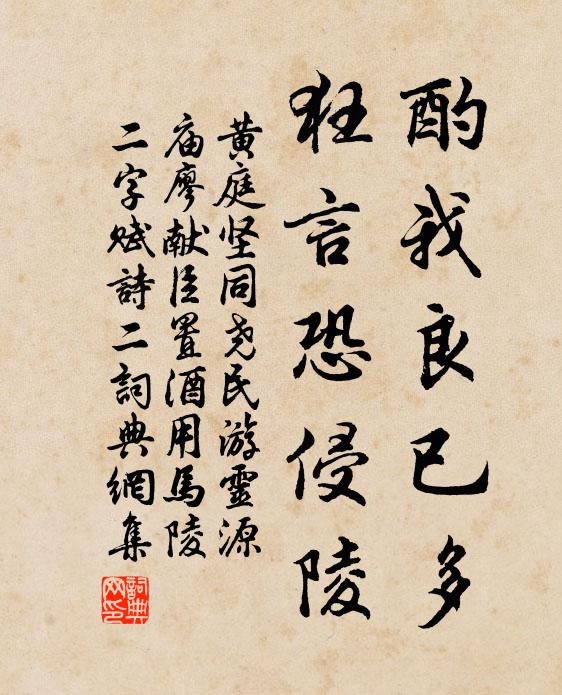 酌我良已多
狂言恐侵陵
黄庭坚同尧民游靈源
庙廖献臣置酒用馬陵
二字赋詩二詞典網集
詞典網印